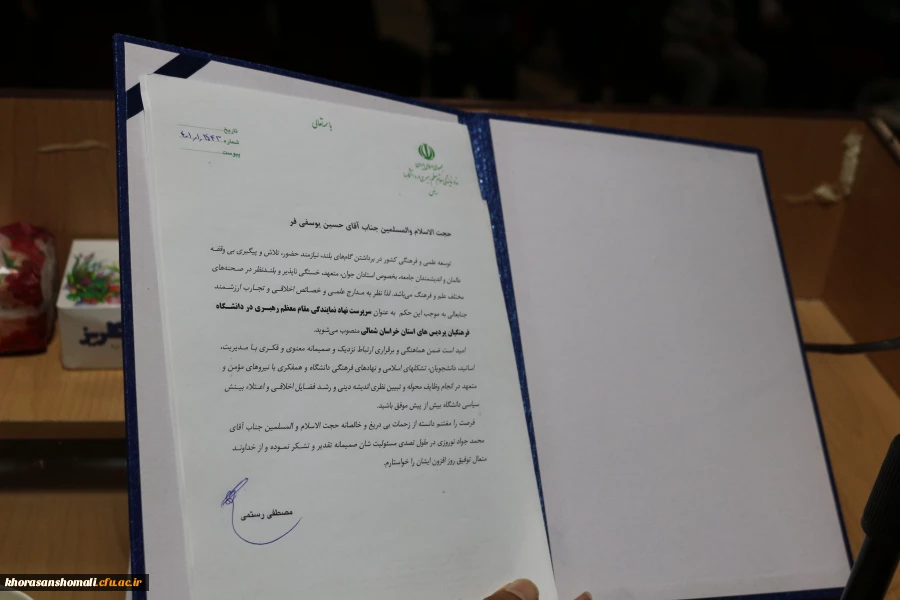 باسمه‌تعالی
تاریخ
شماره
پیوست
حجت الاسلام والمسلمین جناب آقای حسین یوسفی فر
توسعه علمی و فرهنگی کشور در برداشتن گام‌های بلند، نیازمند حضور، تلاش و پیگیری بی وقفـه
عالمان و اندیشمندان جامعه، بخصوص استادان جوان، متعهد، خستگی ناپذیر و بلندنظر در صحنه‌های
مختلف علم و فرهنگ می‌باشد. لذا نظر به مدارج علمی و خصائص اخلاقی و تجارب ارزشمند
جنابعالی به موجب این حکم به عنوان سرپرست نهاد نمایندگی مقام معظم رهبری در دانشگاه
فرهنگیان پردیس های استان خراسان شمالی منصوب می‌شوید.
امید است ضمن هماهنگی و برقراری ارتباط نزدیک و صمیمانه معنوی و فکری با مدیریت،
اساتید، دانشجویان، تشکلهای اسلامی و نهادهای فرهنگی دانشگاه و همفکری با نیروهای مؤمن و
متعهد در انجام وظایف محوله و تبیین نظری اندیشه دینی و رشد فضایل اخلاقی و اعتلاء بینش
سیاسی دانشگاه بیش از پیش موفق باشید.
فرصت را مغتنم دانسته از زحمات بی دریغ و خالصانه حجت الاسلام و المسلمین جناب آقای
محمد جواد نوروزی در طول تصدی مسئولیت شان صمیمانه تقدیر و تشکر نموده و از خداوند
متعال توفیق روز افزون ایشان را خواستارم.
مصطفی رستمی
khorasanshomali.cfu.ac.ir